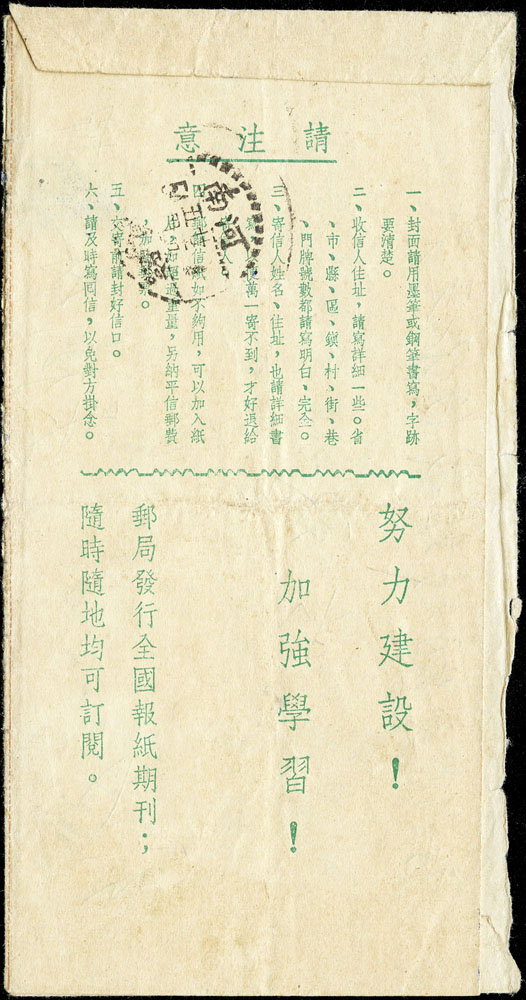 請注意
一、封面請用墨筆或鋼筆書寫，字跡
要清楚。
二、收信人住址，請寫詳細一些。省
、市、縣、區、鎮、村、街、巷
、門牌號數都請寫明白、完全。
三、寄信人姓名、住址，也請詳細書
便萬一寄不到，才好退給
人
四 信紙如不夠用，可以加入紙
超過重量，另納平信郵費
，加
五、交寄前請封好信口。
六、請及時寫回信，以免對方掛念。
努力建設！
加強學習！
郵局發行全國報紙期刊；
隨時隨地均可訂閱。
河南